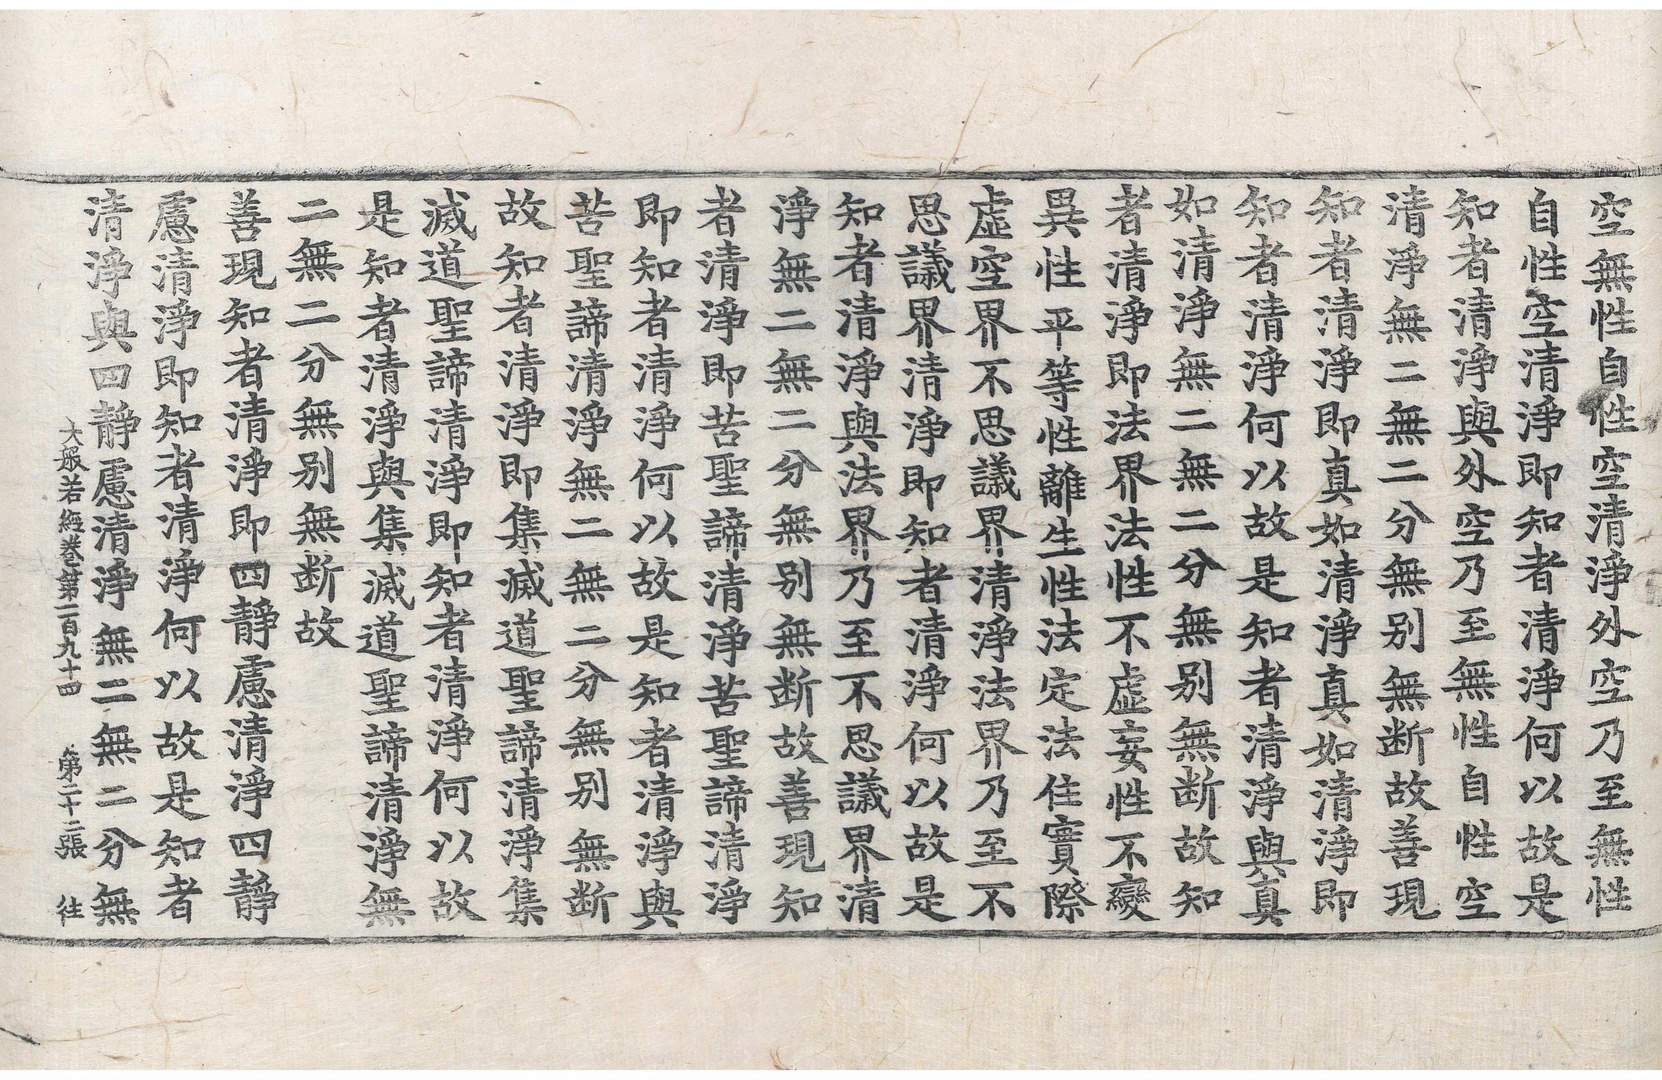 空無性自性空清淨外空乃至無性
自性空清淨即知者清淨何以故是
知者清淨與外空乃至無性自性空
清淨無二無二分無别無断故善現
知者清淨即真如清淨真如清淨即
知者清淨何以故是知者清淨與真
如清淨無二無二分無别無断故知
者清淨即法界法性不虛妄性不變
異性平等性離生性法定法住實際
虛空界不思議界清淨法界乃至不
思議界清淨即知者清淨何以故是
知者清淨與法界乃至不思議界清
淨無二無二分無别無断故善現知
者清淨即苦聖諦清淨苦聖諦清淨
即知者清淨何以故是知者清淨與
苦聖諦清淨無二無二分無别無断
故知者清淨即集滅道聖諦清淨集
滅道聖諦清淨即知者清淨何以故
是知者清淨與集滅道聖諦清淨無
二無二分無别無断故
善現知者清淨即四靜慮清淨四靜
慮清淨即知者清淨何以故是知者
清淨與四靜慮清淨無二無二分無
大般若經卷第二百九十四 第二十二張 往